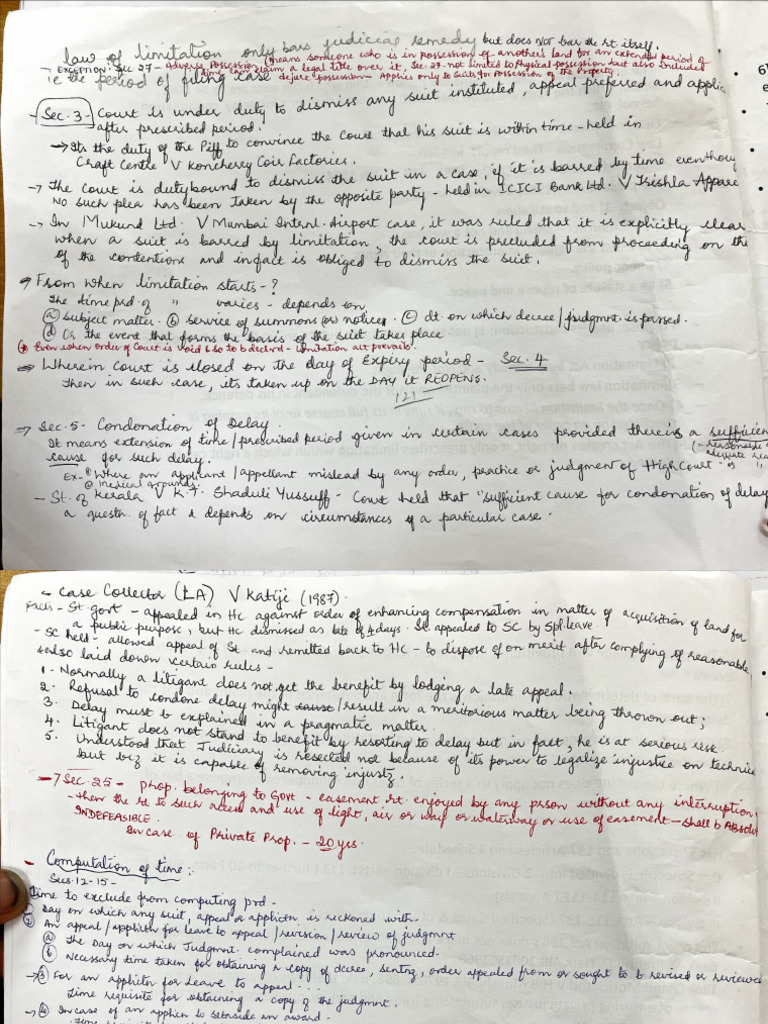 Law of limitation only bars judicial remedy but does not bar the rt. itself.
→ Exception: Sec. 27 - Adverse Possession (means someone who is in possession of another's land for an extended period of
time can claim a legal title over it, Sec. 27 - not limited to physical possession but also includes
i.e the period of filing case dejure possession - Applies only to suits for possession of the property.
- Sec. 3 - Court is under duty to dismiss any suit instituted, appeal preferred and applic
after prescribed period.
→ Its the duty of the Piff to convince the Court that his suit is within time - held in
Craft Centre V Koncherry Coir Factories.
→ The court is dutybound to dismiss the suit in a case, if it is barred by time eventhou
No such plea has been taken by the opposite party - held in ICICI Bank Ltd. V Trishla Appare
→ In Mukund Ltd. V Mumbai Intrnl. Airport case, it was ruled that it is explicitly clear
when a suit is barred by limitation, the court is precluded from proceeding on the
of the contentions and infact is obliged to dismiss the suit.
→ From when limitation starts - ?
The time prd. of " varies - depends on
(a) subject matter. (b) service of summons or notice. (c) dt. on which decree/judgmnt. is passed.
(d) Or the event that forms the basis of the suit takes place
Even when order of Court is void & so to b declrd - limitation act prevails.
→ Wherein Court is closed on the day of Expiry period - Sec. 4
Then in such case, its taken up on the DAY it REOPENS.
121
→ Sec. 5 - Condonation of Delay
It means extension of time/prescribed period given in certain cases provided there is a sufficien
cause for such delay.
(- reasonable
adequate rea
Ex - (1) Where an applicant/appellant mislead by any order, practice or judgment of High Court
(2) medical grounds.
- St. of Kerala V K.T. Shaduli Yussuff - Court held that "sufficient cause for condonation of delay
a questn. of fact & depends on circumstances of a particular case.
- Case Collector (LA) V Katiji (1987).
Facts - St govt - appealed in HC against order of enhancing compensation in matter of acquisition of land for
a public purpose, but HC dismissed as late of 4 days. St. appealed to SC by Spl. leave.
- SC held - allowed appeal of St and remitted back to HC - to dispose of on merit after complying of reasonable
& also laid down certain rules -
1. Normally a litigant does not get the benefit by lodging a late appeal.
2. Refusal to condone delay might cause/result in a meritorious matter being thrown out;
3. Delay must b explained in a pragmatic matter.
4. Litigant does not stand to benefit by resorting to delay but in fact, he is at serious risk.
5. Understood that Judiciary is resected not because of its power to legalize injustice on technic
but bcz it is capable of removing injustz.
→ Sec. 25 - Prop. belonging to Govt - easement rt. enjoyed by any prson without any interruption,
- then the rt to such access and use of light, air or way or waterway or use of easement - shall b Absolu
INDEFEASIBLE.
In case of Private Prop. - 20 yrs.
- Computation of time:
Secs. 12-15 -
Time to exclude from computing prd -
(1) Day on which any suit, appeal or applictn is reckoned with.
(2) An appeal/applictn for leave to appeal/revision/review of judgmnt
(a) The Day on which Judgmnt. complained was pronounced.
(b) Necessary time taken for obtaining a copy of decree, sentnz, order appealed from or sought to b revised or reviewed
→ (3) For an applictn for Leave to appeal...
Time requisite for obtaining a copy of the judgmnt.
→ (4) In case of an applicn to setaside an award.